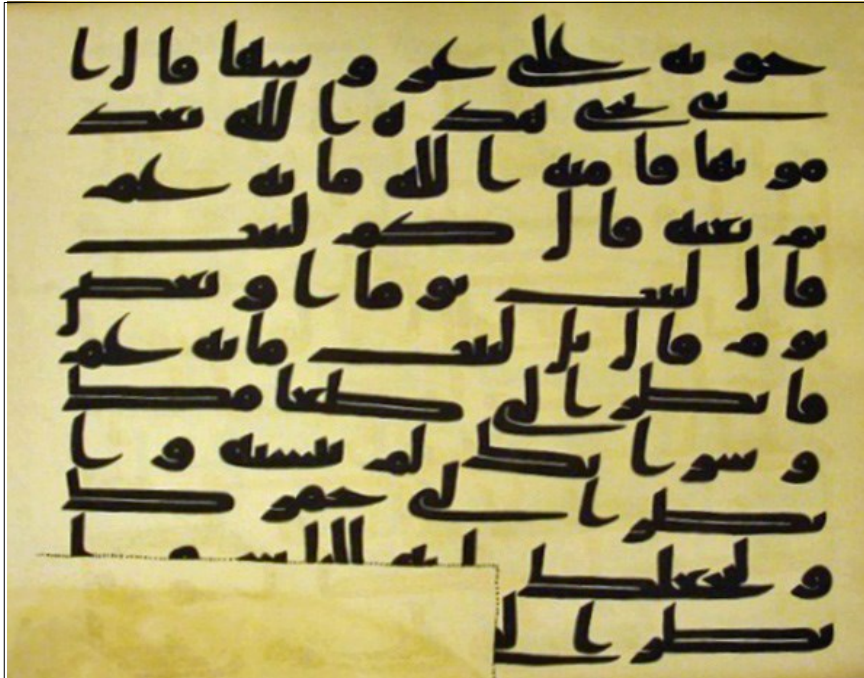 خويه على عروشها قال ا
نى يحى هذه ا لله بعد
موتها فا مته ا لله مائه عم
ثم بعثه قال كم لبثت
قال لبثت يوما او بعض
يوم قال بل لبثت مائه عم
فانظر الى طعامك
و شر ا بك لم يتسنه و ا
نظر ا لى حمرك
و لنجعلك ايه للناس و ا
نظر ا لى